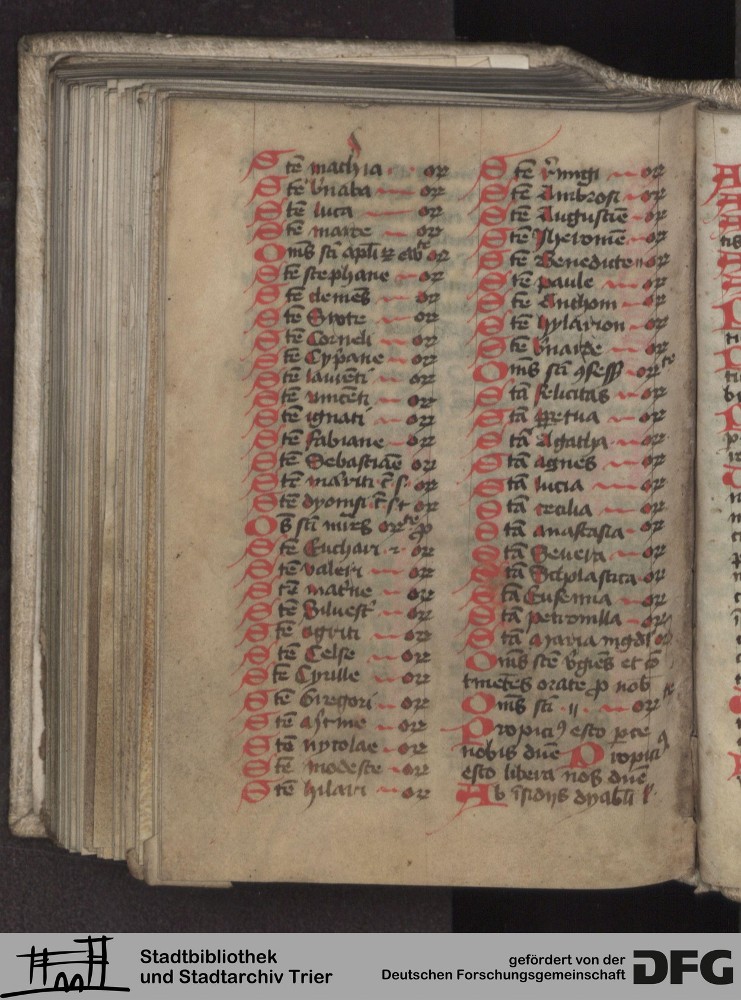 Stē mathia or
Stē b'naba or
Stē luca or
Stē marce or
Om̄s sc̄i apl̄i or
Stē stephane or
Stē clemēs or
Stē Sixte or
Stē Corneli or
Stē Cyp'ane or
Stē laurēti or
Stē vincēti or
Stē ignati or
Stē fabiane or
Stē Sebastiāe or
Stē mauriti c̄ s
Stē dyonisi c̄ s or
Om̄s sc̄i m̄res orate p
Stē Euchari or
Stē valeri or
Stē mat'ne or
Stē Silvest' or
Stē agriti or
Stē Celse or
Stē Cyrille or
Stē Gregori or
Stē or
Stē nycolae or
Stē modeste or
Stē hilari or
Stē r'migi or
Stē Ambrosi or
Stē Augustīe or
Stē Jheronīe or
Stē Benedicte or
Stē paule or
Stē Anthoni or
Stē hylarion or
Stē b'narde or
Om̄s sc̄i ꝯfess orate
Stā felicitas or
Stā ꝑpetua or
Stā Agatha or
Stā agnes or
Stā lucia or
Stā cecilia or
Stā anastasia or
Stā Severa or
Stā Scholastica or
Stā Eufemia or
Stā petronilla or
Stā Maria mgdl or
Om̄s stē v'gīes et cō
tinētes orate ꝓ nob
Om̄s sc̄i or
Propiciꝰ esto parce
nobis dn̄e Propiciꝰ
esto libera nos dn̄e
Ab īsidijs dyabl̄i l
Stadtbibliothek
und Stadtarchiv Trier
gefördert von der
Deutschen Forschungsgemeinschaft
DFG